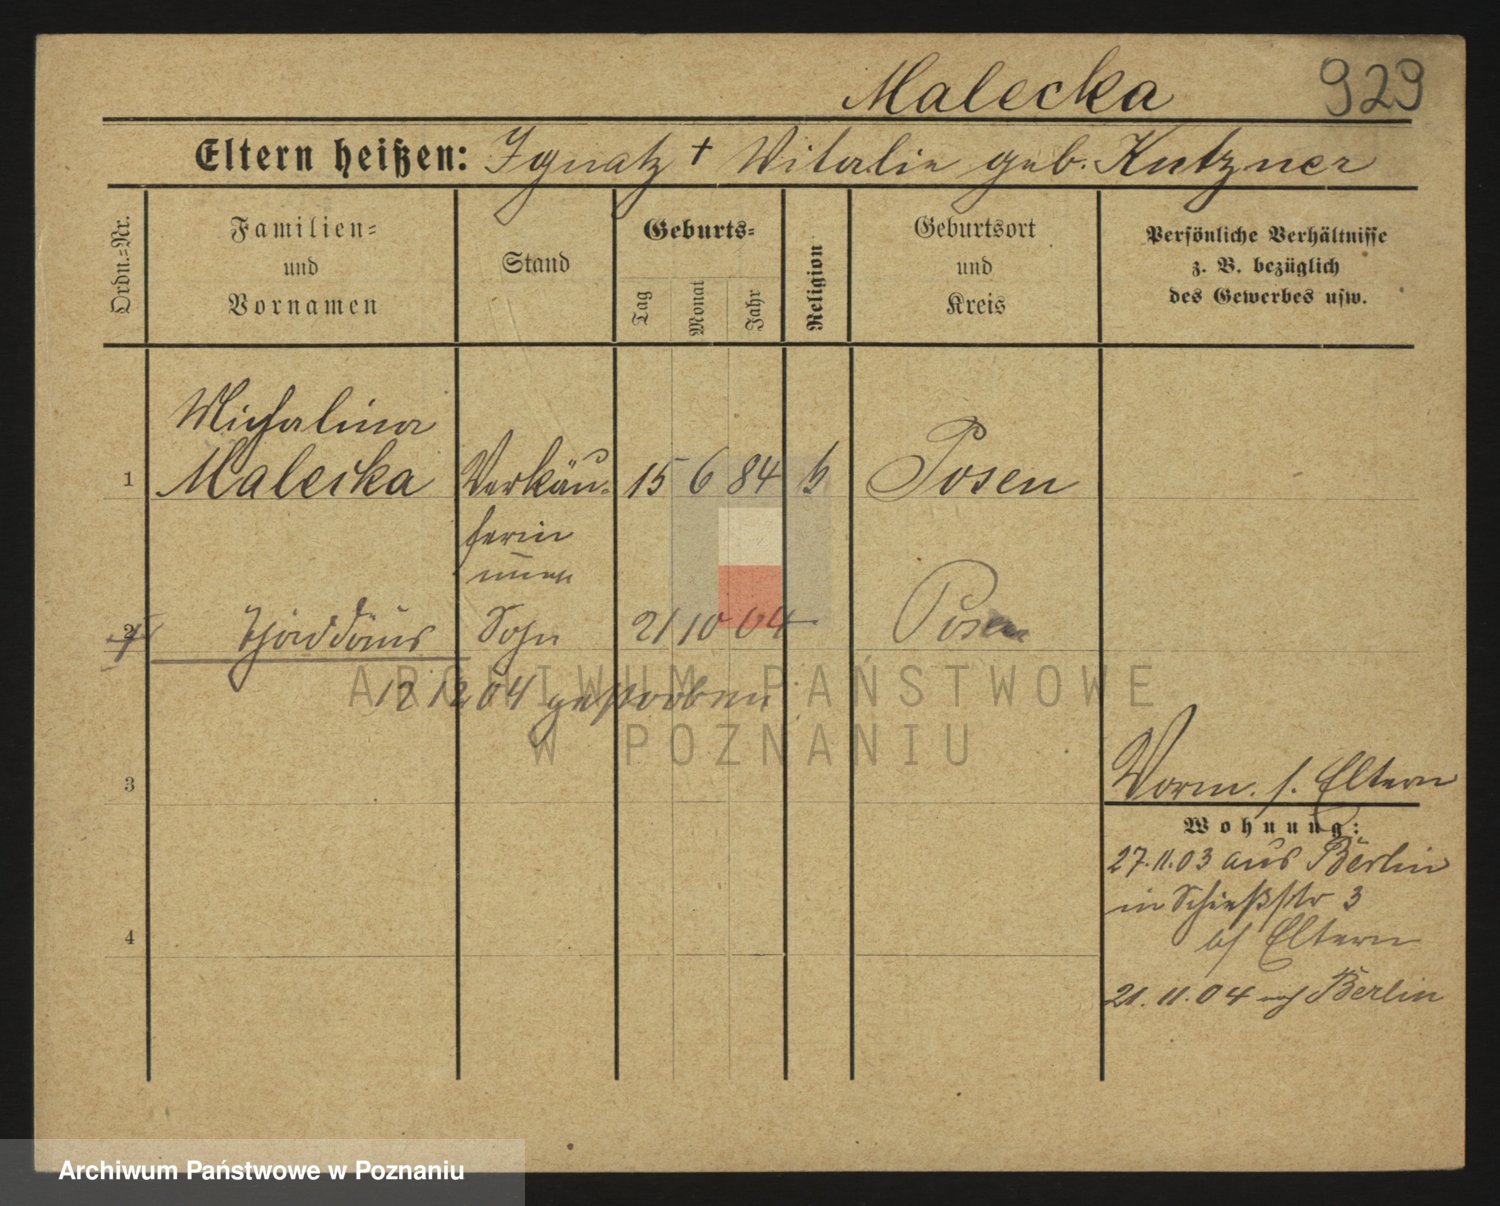 Malecka 929
Eltern heißen: Ignatz + Vitalie geb. Kutzner
Ordn.=Nr.
Familien=
und
Vornamen
Stand
Geburts=
Tag
Monat
Jahr
Religion
Geburtsort
und
Kreis
Persönliche Verhältnisse
z. B. bezüglich
des Gewerbes usw.
Michalina
1 Malecka Verkäu- 15 6 84 k Posen
ferin
2 Thaddäus Sohn 21 10 04 Posen
12 12 04 gestorben
ARCHIWUM PAŃSTWOWE
W POZNANIU
3
4
Vorm. s. Eltern
Wohnung:
27.11.03 aus Berlin
in Schießstr 3
b/ Eltern
21.11.04 nach Berlin
Archiwum Państwowe w Poznaniu